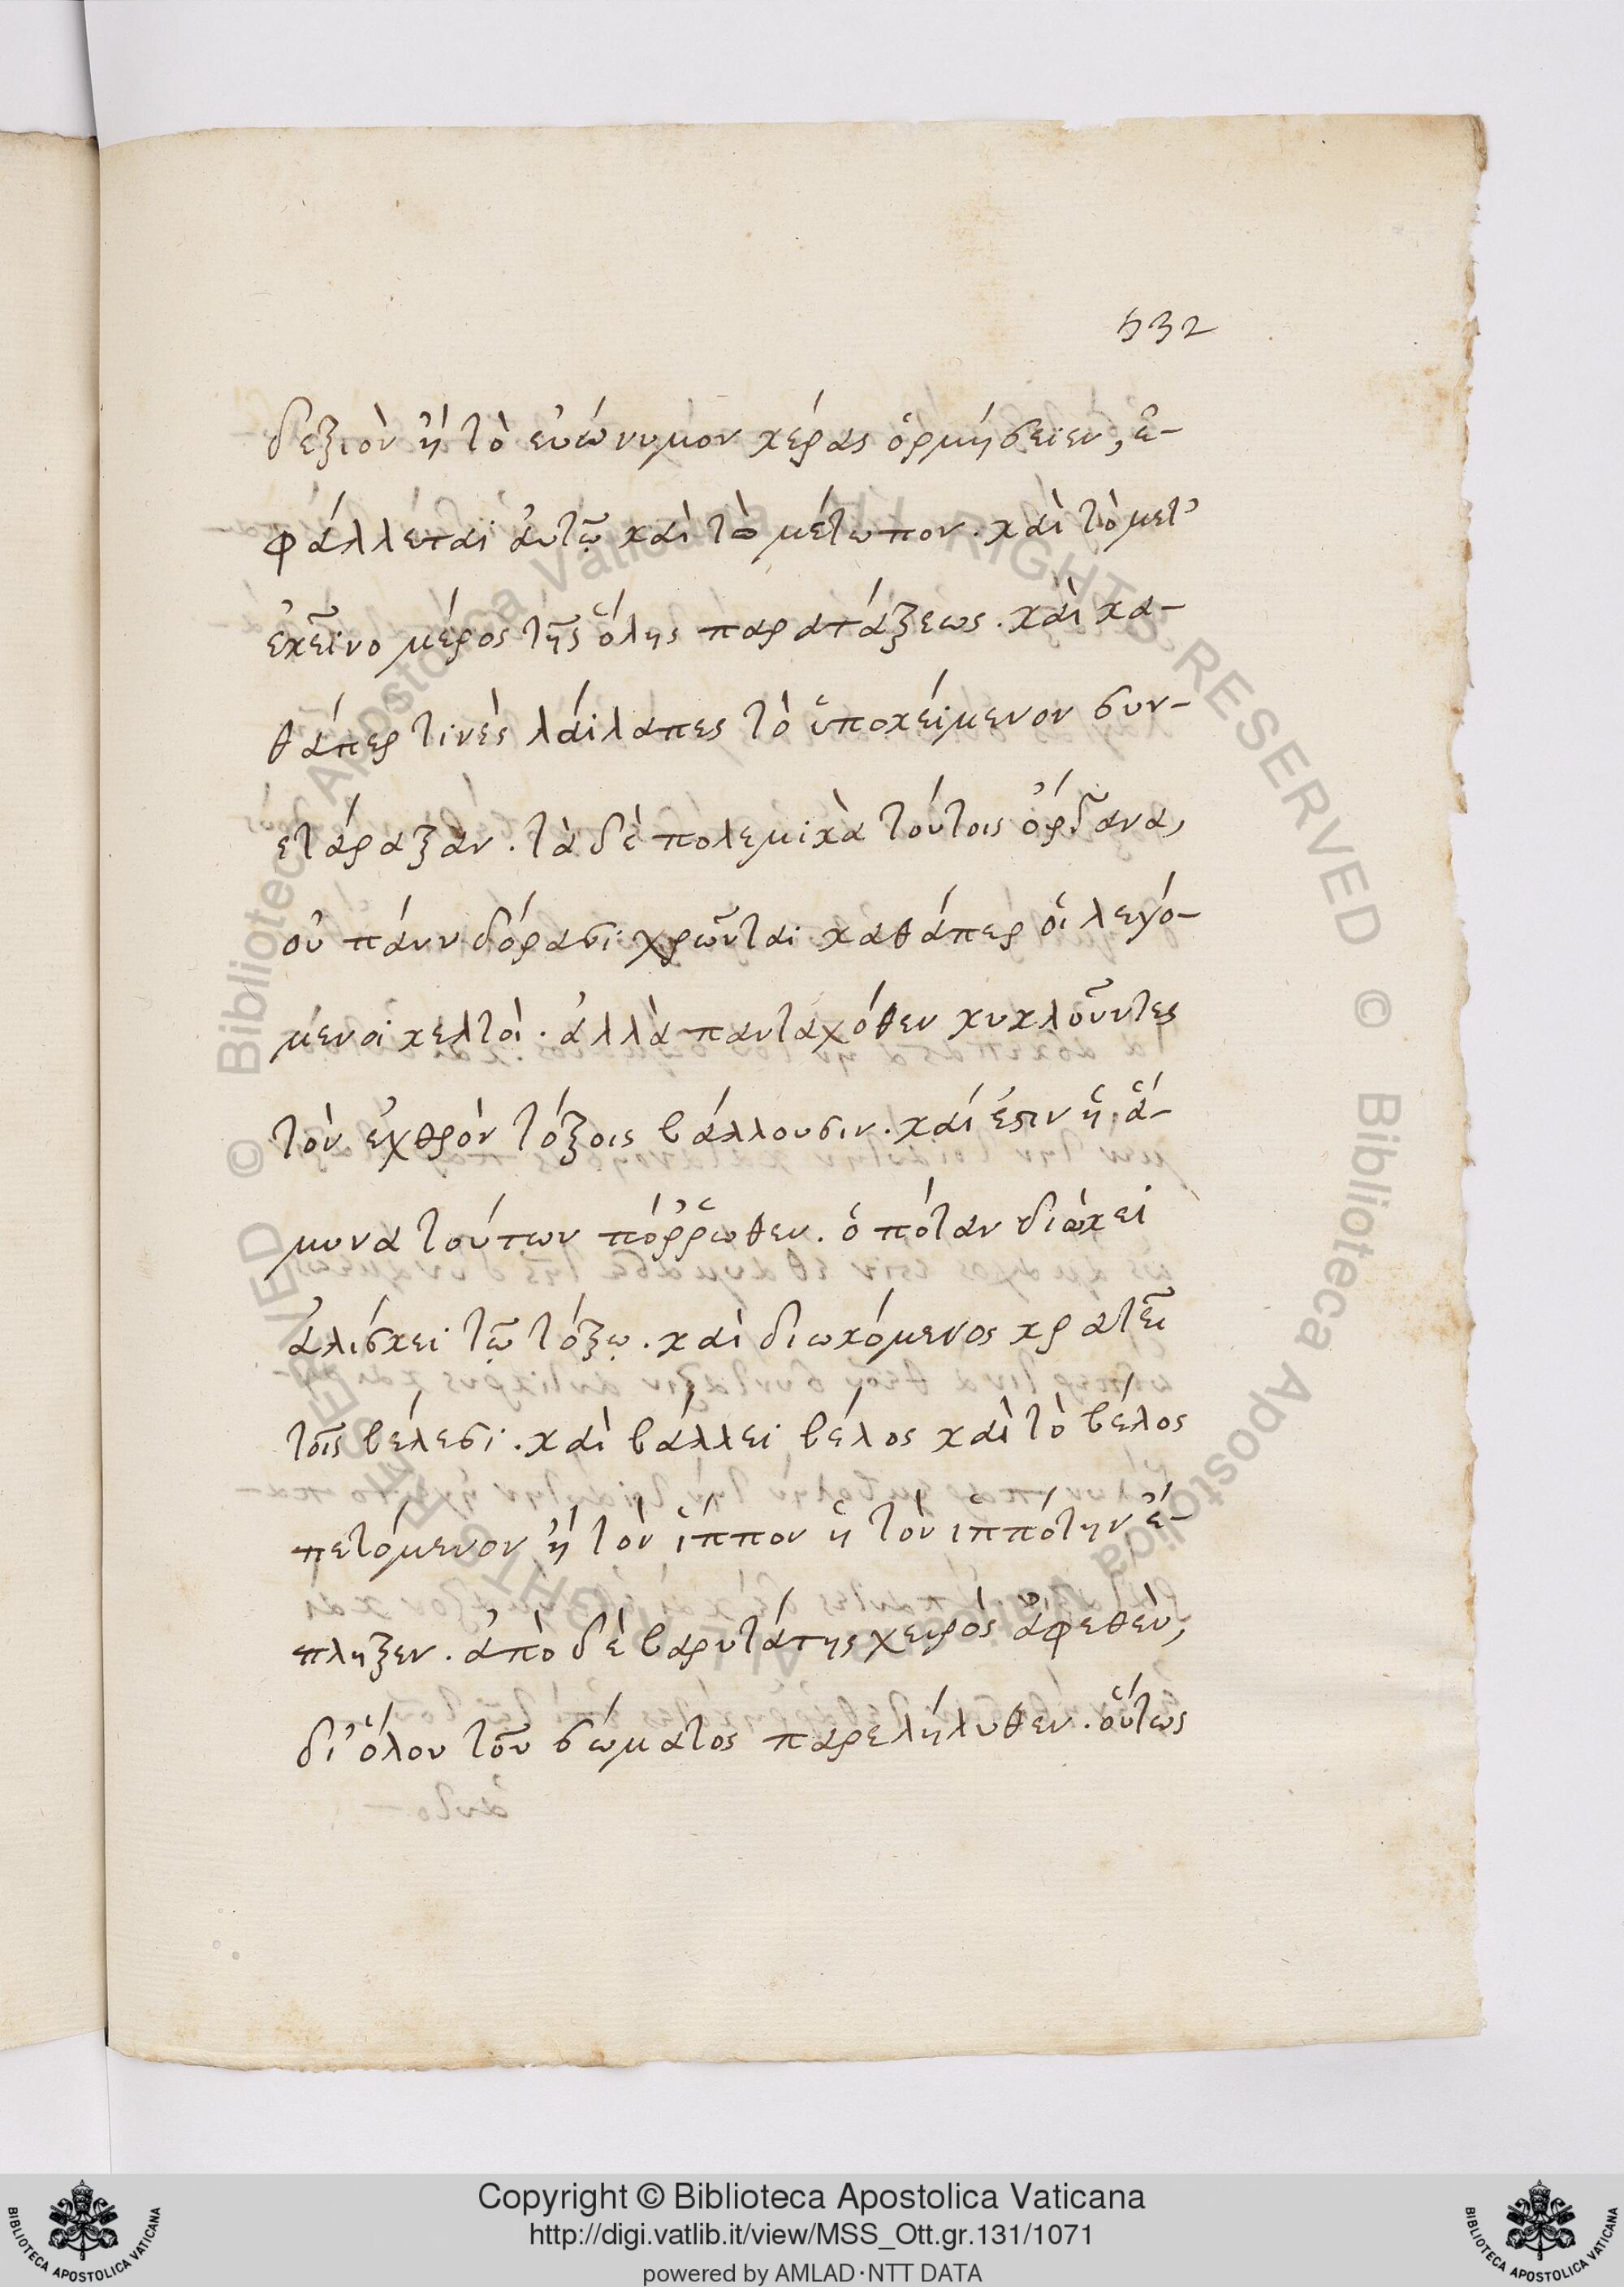 532
δεξιὸν ἢ τὸ εὐώνυμον κέρας ὁρμήσειεν, ἐ-
φάλλεται ἀυτῷ καὶ τὸ μέτωπον. καὶ τὸ μετ'
ἐκεῖνο μέρος τῆς ὅλης παρατάξεως. καὶ κα-
θάπερ τινὲς λάιλαπες τὸ ὑποκείμενον συν-
ετάραξαν. τὰ δὲ πολεμικὰ τούτοις ὄργανα,
οὐ πάνυ δόρασι χρῶνται καθάπερ οἱ λεγό-
μενοι κελτοὶ. ἀλλὰ πανταχόθεν κυκλοῦντες
τὸν ἐχθρὸν τόξοις βάλλουσιν. καί ἐστιν ἡ ἄ-
μυνα τούτων πόῤῥωθεν. ὁπόταν διώκει
ἁλίσκει τῷ τόξῳ. καὶ διωκόμενος κρατεῖ
τοῖς βέλεσι. καὶ βάλλει βέλος καὶ τὸ βέλος
πετόμενον ἢ τὸν ἵππον ἢ τὸν ἱππότην ἔ-
πληξεν. ἀπὸ δὲ βαρυτάτης χειρὸς ἀφεθὲν,
δι' ὅλου τοῦ σώματος παρελήλυθεν. οὕτως
© Biblioteca Apostolica Vaticana ALL RIGHTS RESERVED © Biblioteca Apostolica Vaticana ALL RIGHTS RESERVED
BIBLIOTECA APOSTOLICA VATICANA
Copyright © Biblioteca Apostolica Vaticana
http://digi.vatlib.it/view/MSS_Ott.gr.131/1071
powered by AMLAD·NTT DATA
BIBLIOTECA APOSTOLICA VATICANA